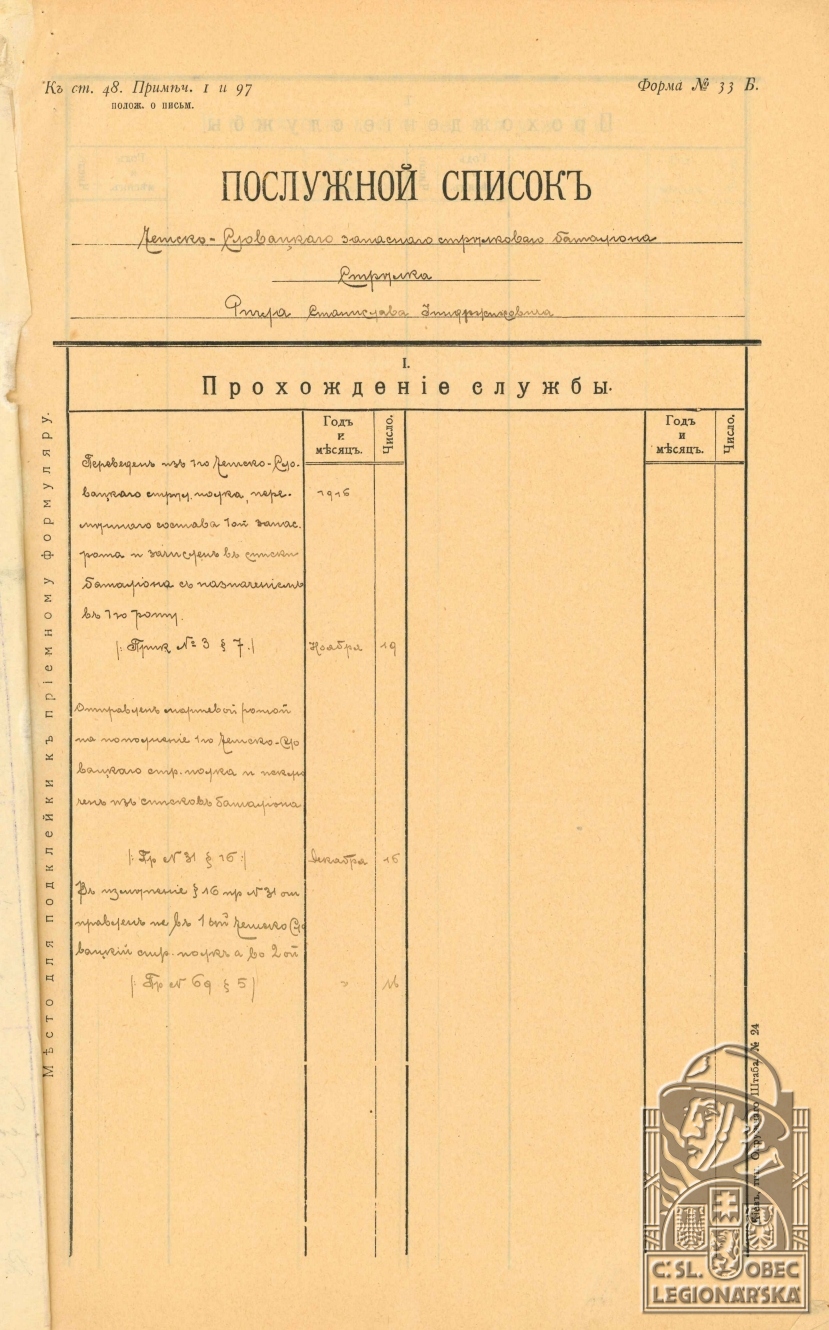 Къ ст. 48. Примѣч. 1 и 97
полож. о письм.
Форма № 33 Б.
ПОСЛУЖНОЙ СПИСОКЪ
Чешско-Словацкаго запаснаго стрѣлковаго баталіона
Стрѣлка
Станислава
I.
Прохожденіе службы.
Годъ и мѣсяцъ.
Число.
Годъ и мѣсяцъ.
Число.
Переведенъ изъ 1го Чешско-Сло-
вацкаго стрѣл. полка, пере-
1916
мѣннаго состава 1ой запас.
рота и зачисленъ въ списки
баталіона съ назначеніемъ
въ 1ю роту.
/: Прик № 3 § 7. /
Ноября 19
Отправленъ маршевой ротой
на пополненіе 1го Чешско-Сло
вацкаго стр. полка и исклю
ченъ изъ списковъ баталіона
/: Пр N 31 § 16 :/
Декабря 16
Въ измѣненіе § 16 пр N 31 от
правленъ не въ 1ый Чешско Сло
вацкій стр. полкъ а во 2ой
/: Пр N 69 § 5 /
" 16
Мѣсто для подклейки къ пріемному формуляру.
Штаба. № 24
Č.SL. OBEC
LEGIONÁŘSKÁ